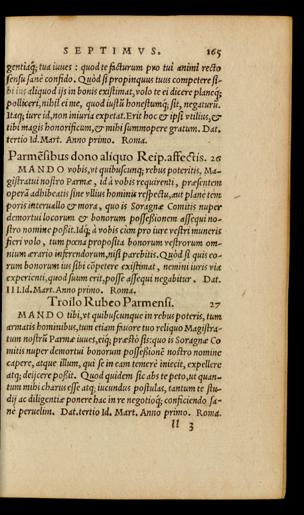 SEPTIMVS. 165
gentiaq́; tua iuues: quod te facturum pro tui animi recto
sensu sanè confido. Quòd si propinquus tuus competere si-
bi ius aliquod ijs in bonis existimat, volo te ei dicere planeq́;
polliceri, nihil ei me, quod iustū honestumq́; sit, negaturū.
Itaq; iure id, non iniuria expetat. Erit hoc & ipsi vtilius, &
tibi magis honorificum, & mihi summopere gratum. Dat.
tertio Id. Mart. Anno primo. Roma.
Parmēsibus dono aliquo Reip. affectis. 26
MANDO vobis, vt quibuscunq; rebus poteritis, Ma-
gistratui nostro Parmæ, id à vobis requirenti, præsentem
operā adhibeatis sine vllius hominis respectu, aut planè tem
poris interuallo & mora, quo is Soragnæ Comitis nuper
demortui locorum & bonorum possessionem assequi no-
stro nomine possit. Idq́; à vobis cùm pro iure vestri muneris
fieri volo, tum pœna proposita bonorum vestrorum om-
nium ærario inferendorum, nisi parebitis. Quòd si quis eo-
rum bonorum ius sibi cōpetere existimat, nemini iuris via
experienti, quod suum erit, posse assequi negabitur. Dat.
III. Id. Mart. Anno primo. Roma.
Troilo Rubeo Parmensi. 27
MANDO tibi, vt quibuscunque in rebus poteris, tum
armatis hominibus, tum etiam fauore tuo reliquo Magistra-
tum nostrū Parmæ iuues, eiq́; præstò sis: quo is Soragnæ Co
mitis nuper demortui bonorum possessionē nostro nomine
capere, atque illum, qui se in eam temerè iniecit, expellere
atq; deijcere possit. Quod quidem sic abs te peto, ut quan-
tum mihi charus esse atq; iucundus postulas, tantum te stu-
dij ac diligentiæ ponere hac in re negotioq́; conficiendo sa-
nè peruelim. Dat. tertio Id. Mart. Anno primo. Roma.
ll 3